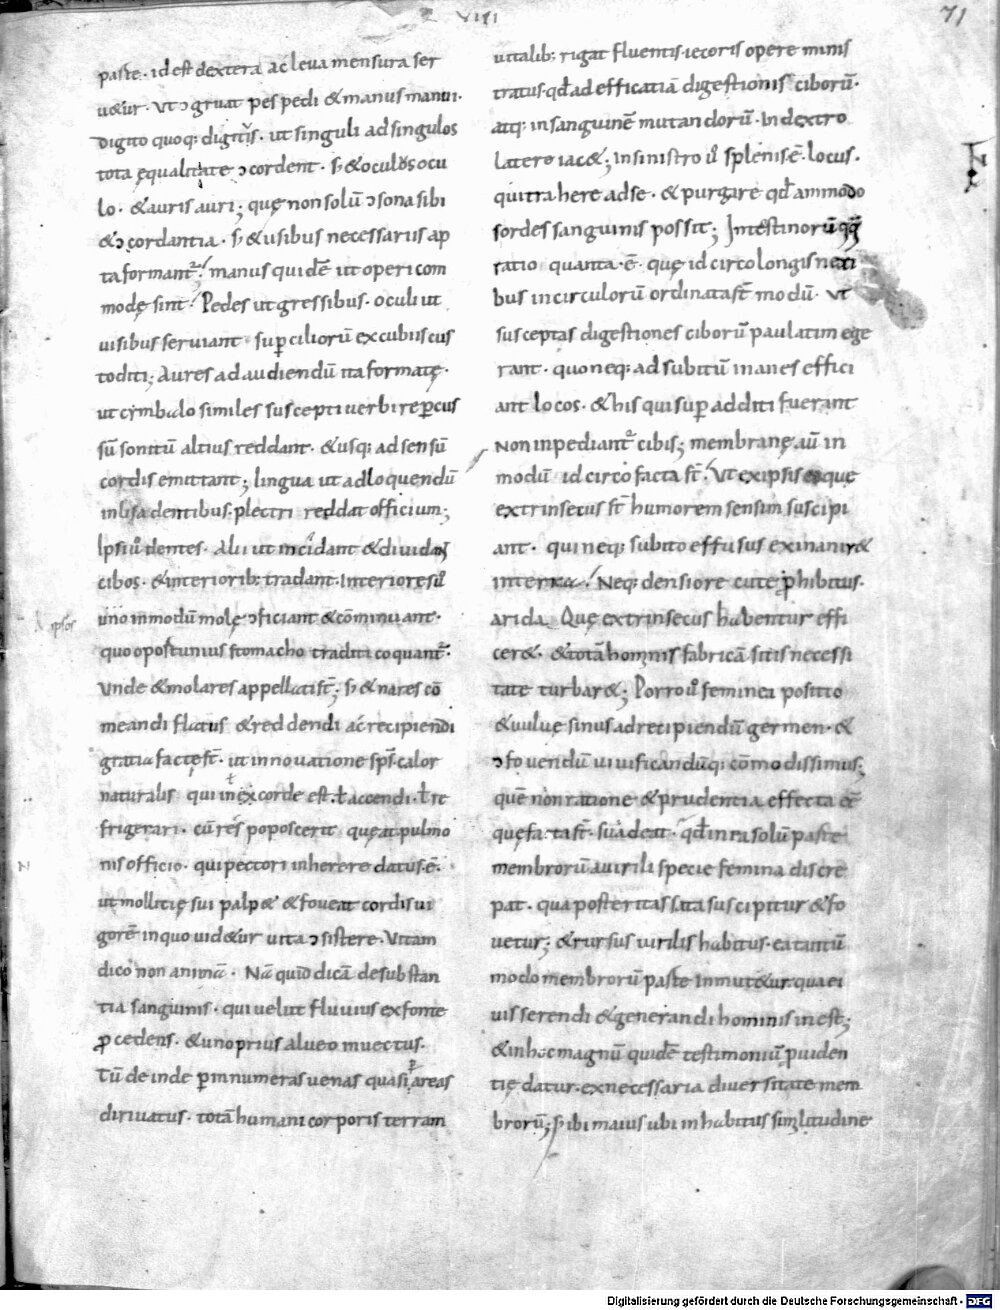 VIII
71
parte · id est dextera ac leva mensura ser
u&ur · Ut ɔgruat pes pedi & manus manui ·
Digito quoq; digitus · ut singuli ad singulos
tota ęqualitate ɔcordent · s; & oculos ocu
lo · & auris auri; quę non solū ɔsona sibi
&ɔcordantia · s; & usibus necessariis ap
ta formant᷑; manus quidē ut operi com
modę sint · Pedes ut gressibus · oculi ut
visibus serviant sup̱ciliorū excubiis cus
toditi; Aures ad audiendū ita formatę ·
ut cymbalo similes suscepti verbi rep̱cus
sū sonitū altius reddant · & usq; ad sensū
cordis emittant; lingua ut ad loquendū
inlisa dentibus · plectri reddat officium;
Ipsi ū dentes · Alii ut incidant & dividant
cibos · & interiorib; tradant · interiores ū
uno in modū molę ɔficiant & cōminuant ·
ipsos
quo oportunius stomacho traditi coquant᷑ ·
Unde & molares appellati st̄; s; & nares cō
meandi flatus & reddendi ac recipiendi
gratia factę st̄ · ut innovatione sps̄ · calor
naturalis qui in ex corde est · ł accendi · ł re
frigerari · cū res poposcerit queat pulmo
nis officio · qui pectori inherere datus · ē ·
N
ut mollitię sui palp& & foveat cordis vi
gorē in quo vid&ur vita ɔsistere · Vitam
dico non animā · Nā quid dicā de substan
tia sanguinis · qui velut fluvius ex fonte
p̱cedens · & uno prius alveo invectus ·
Tū deinde p̱ innumeras venas quasi p̱ areas
dirivatus · totā humani corporis terram
vitalib; rigat fluentis · iecoris opere minis
tratus · qđ ad efficatiā digestionis ciborū ·
atq; in sanguinē mutandorū · In dextro
latere iac&; In sinistro ū splenis · ē · locus ·
qui trahere ad se · & purgare qđammodo
sordes sanguinis possit; Intestinorū qq;
ratio quanta · ē · quę idcirco longis nexi
bus in circulorū ordinata st̄ modū · Ut
susceptas digestiones ciborū paulatim ege
rant · quo neq; ad subitū inanes effici
ant locos · & his qui sup̱ additi fuerant
Non inpediant᷑ cibis; membranę aū in
modū idcirco facta st̄ · Ut ex ipsis eaque
extrinsecus st̄ humorem sensim suscipi
ant · qui neq; subito effusus exinanir&
interna · Neq; densiore cute p̱hibitus ·
arida Quę extrinsecus habentur effi
cer& · & totā hominis fabricā sitis necessi
tate turbar&; Porro ū feminea positio
& vulvę sinus ad recipiendū germen · &
ɔfovendū vivificandūq; cōmodissimus;
quē non ratione & prudentia effecta ēē
que facta st̄ · suadeat · qđ in ea solū parte
membrorū a virili specie femina discre
pat · qua posteritas sata suscipitur & fo
vetur; & rursus virilis habitus · ea tantū
modo membrorū parte inmut&ur · qua ei
vis serendi & generandi hominis inest;
& in hoc magnū quidē testimoniū p̱viden
tię datur · ex necessaria diversitate mem
brorū; s; ibi maius ubi in habitus similitudine
Digitalisierung gefördert durch die Deutsche Forschungsgemeinschaft - DFG